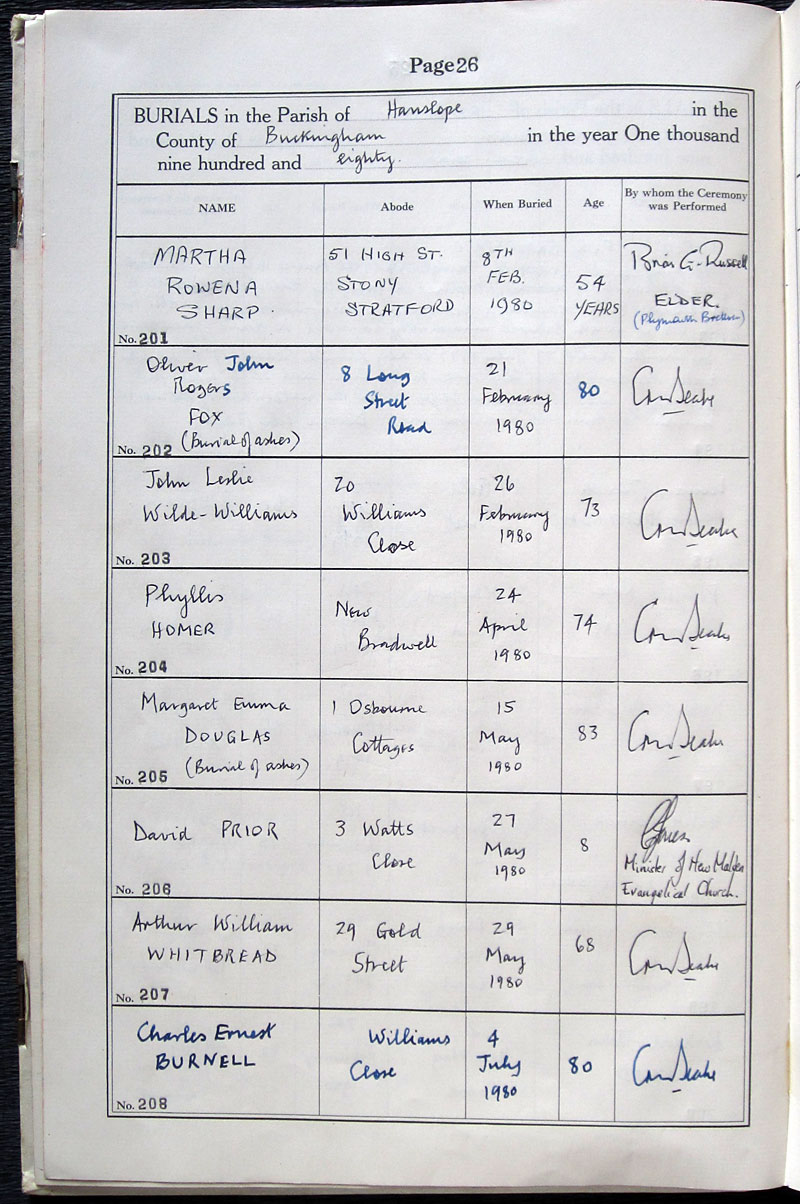 Page26
BURIALS in the Parish of Hanslope in the
County of Buckingham in the year One thousand
nine hundred and eighty.
NAME Abode When Buried Age By whom the Ceremony was Performed
MARTHA
ROWENA
SHARP.
No. 201
51 HIGH ST.
STONY
STRATFORD
8TH
FEB.
1980
54
YEARS
Brian G. Russell
ELDER.
(Plymouth Brethren)
Oliver John
Rogers
FOX
(Burial of ashes)
No. 202
8 Long
Street
Road
21
February
1980
80
John Leslie
Wilde-Williams
No. 203
20
Williams
Close
26
February
1980
73
Phyllis
HOMER
No. 204
New
Bradwell
24
April
1980
74
Margaret Emma
DOUGLAS
(Burial of ashes)
No. 205
1 Osbourne
Cottages
15
May
1980
83
David PRIOR
No. 206
3 Watts
Close
27
May
1980
8
Minister of New Malden
Evangelical Church.
Arthur William
WHITBREAD
No. 207
29 Gold
Street
29
May
1980
68
Charles Ernest
BURNELL
No. 208
Williams
Close
4
July
1980
80